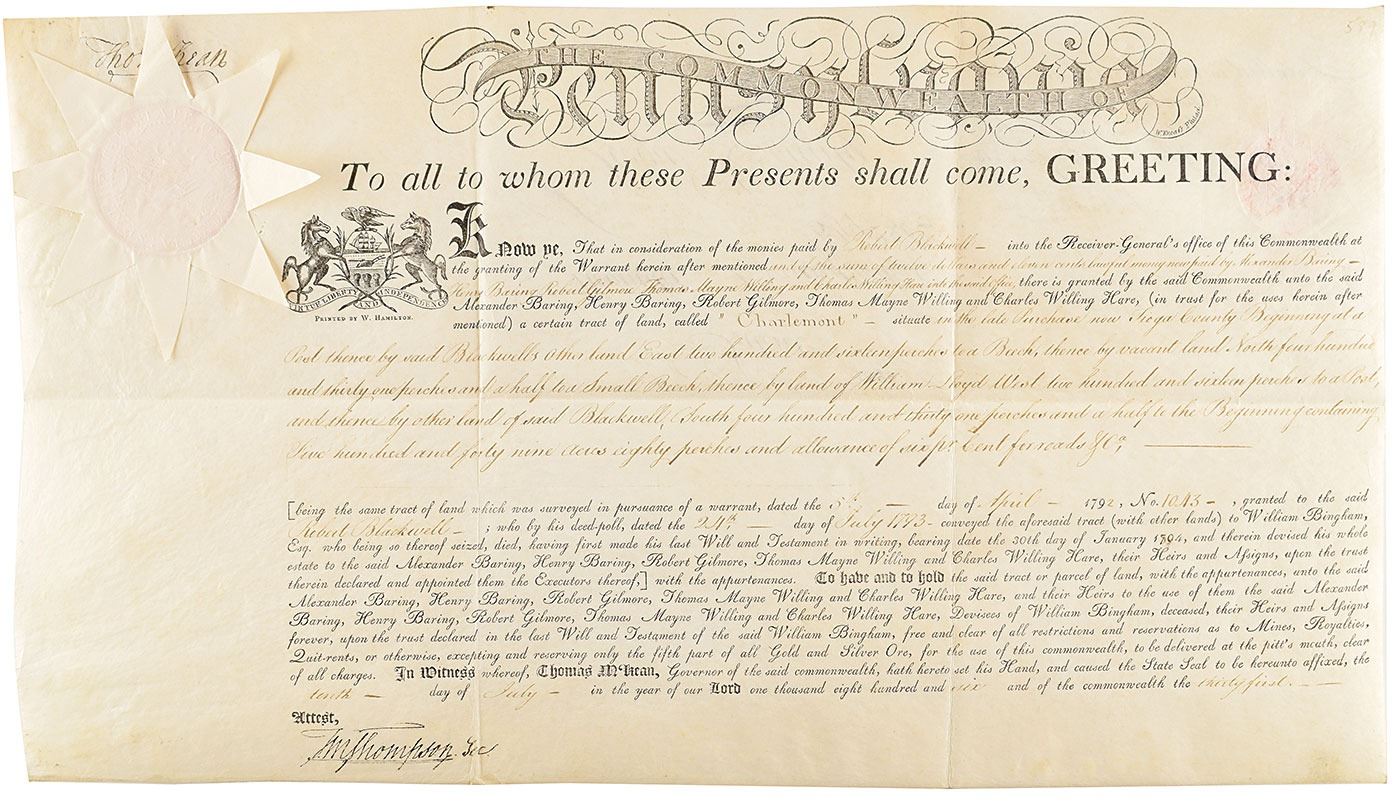 Tho M:Kean
THE COMMONWEALTH OF
Pennsylvania
To all to whom these Presents shall come, GREETING:
VIRTUE LIBERTY AND INDEPENDENCE
PRINTED BY W. HAMILTON.
Know ye, That in consideration of the monies paid by Robert Blackwell – into the Receiver-General's office of this Commonwealth at
the granting of the Warrant herein after mentioned and of the sum of twelve dollars and eleven cents lawful money now paid by Alexander Baring –
Henry Baring Robert Gilmore, Thomas Mayne Willing and Charles Willing Hare into the said office, there is granted by the said Commonwealth unto the said
Alexander Baring, Henry Baring, Robert Gilmore, Thomas Mayne Willing and Charles Willing Hare, (in trust for the uses herein after
mentioned) a certain tract of land, called " Charlemont " – situate in the late Purchase now Tioga County Beginning at a
Post thence by said Blackwell's other land East two hundred and sixteen perches to a Beech, thence by vacant land North four hundred
and thirty one perches and a half to a Small Beech, thence by land of William Lloyd West two hundred and sixteen perches to a Post,
and thence by other land of said Blackwell South four hundred and thirty one perches and a half to the Beginning containing
Five hundred and forty nine acres eighty perches and allowance of six pr. Cent for roads &ca,
[being the same tract of land which was surveyed in pursuance of a warrant, dated the 5th – day of April – 1792, No. 1043 – , granted to the said
Robert Blackwell – ; who by his deed-poll, dated the 24th – day of July 1793 – conveyed the aforesaid tract (with other lands) to William Bingham,
Esq. who being so thereof seized, died, having first made his last Will and Testament in writing, bearing date the 30th day of January 1794, and therein devised his whole
estate to the said Alexander Baring, Henry Baring, Robert Gilmore, Thomas Mayne Willing and Charles Willing Hare, their Heirs and Assigns, upon the trust
therein declared and appointed them the Executors thereof,] with the appurtenances. To have and to hold the said tract or parcel of land, with the appurtenances, unto the said
Alexander Baring, Henry Baring, Robert Gilmore, Thomas Mayne Willing and Charles Willing Hare, and their Heirs to the use of them the said Alexander
Baring, Henry Baring, Robert Gilmore, Thomas Mayne Willing and Charles Willing Hare, Devisees of William Bingham, deceased, their Heirs and Assigns
forever, upon the trust declared in the last Will and Testament of the said William Bingham, free and clear of all restrictions and reservations as to Mines, Royalties,
Quit-rents, or otherwise, excepting and reserving only the fifth part of all Gold and Silver Ore, for the use of this commonwealth, to be delivered at the pitt's mouth, clear
of all charges. In Witness whereof, Thomas M'Kean, Governor of the said commonwealth, hath hereto set his Hand, and caused the State Seal to be hereunto affixed, the
tenth – day of July – in the year of our Lord one thousand eight hundred and six and of the commonwealth the thirty first. –
Attest,
TMThompson Sec